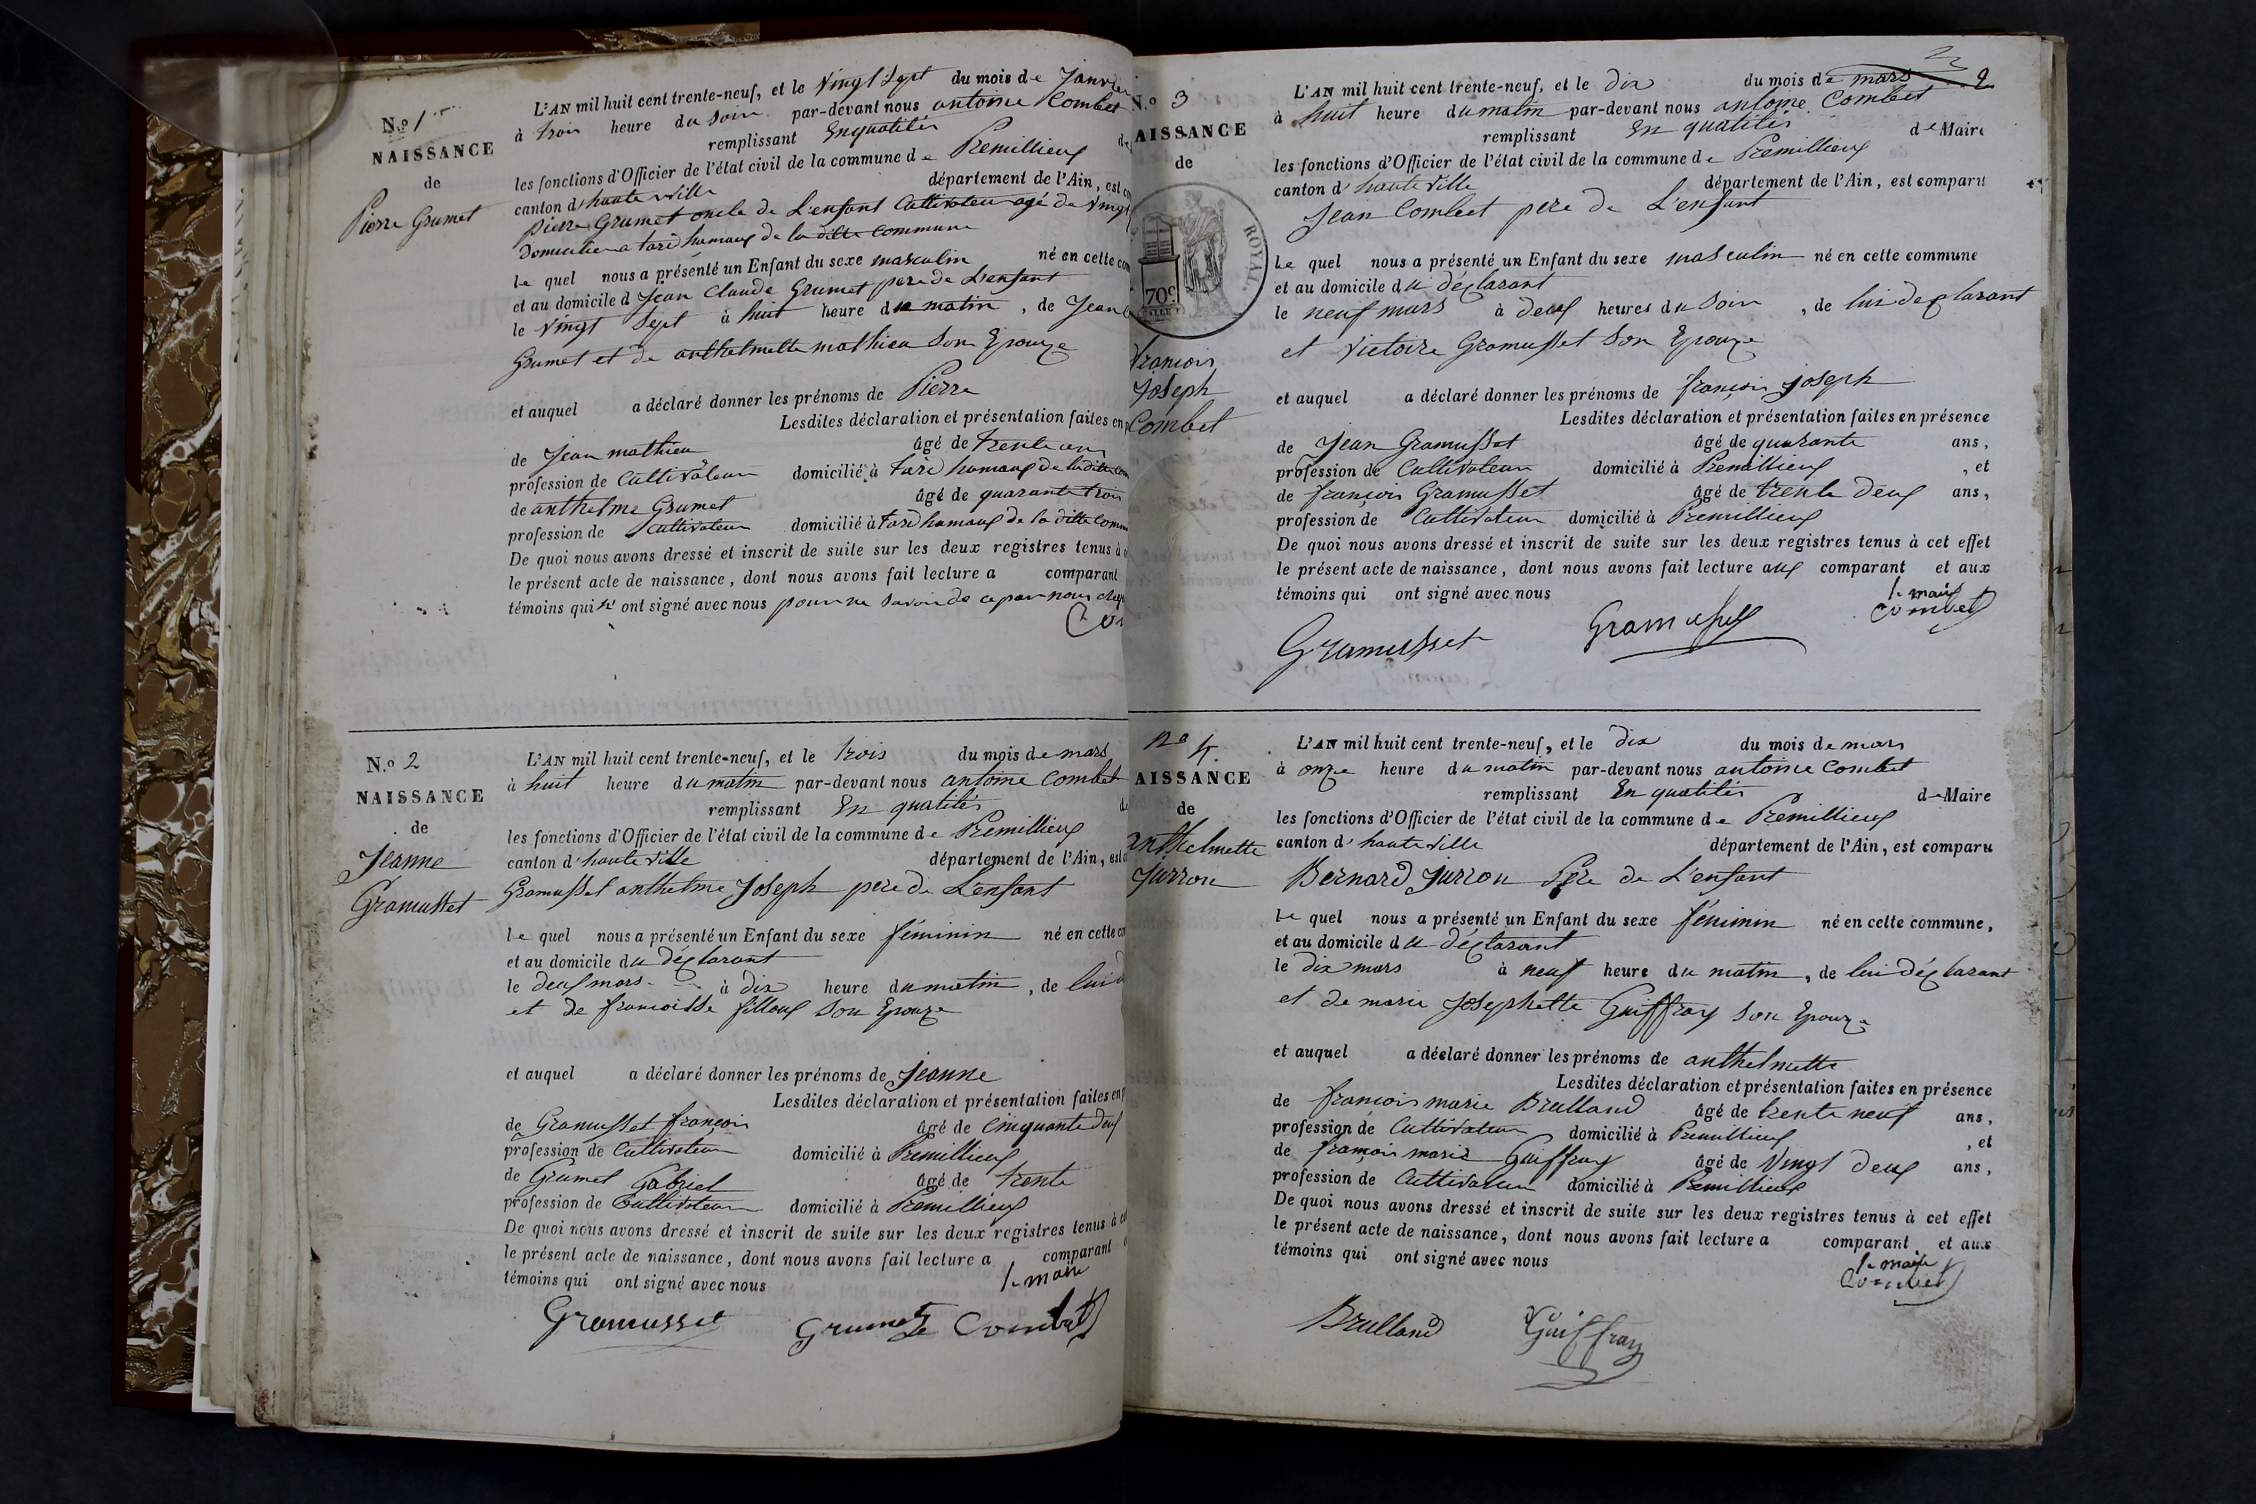 N.º 1
NAISSANCE
de
Pierre Grumet
L'AN mil huit cent trente-neuf, et le Vingt Sept du mois de Janvier
à trois heure du Soir par-devant nous antoine Combet
remplissant En qualités de
les fonctions d'Officier de l'état civil de la commune de Premillieux
canton d'hauteville département de l'Ain, est
pierre Grumet oncle de L'enfant Cultivateur agé de Vingt
Domicilier a tard hamaux de la ditte commune
Le quel nous a présenté un Enfant du sexe masculin né en cette
et au domicile d Jean Claude Grumet pere de L'enfant
le Vingt Sept à huit heure du matin, de Jean
Grumet et de anthelmette mathieu Son Epouze
et auquel a déclaré donner les prénoms de Pierre
Lesdites déclaration et présentation faites en
de Jean mathieu âgé de trente ans
profession de Cultivateur domicilié à tard hamaux de la ditte
de anthelme Grumet âgé de quarante trois
profession de Cultivateur domicilié à tard hamaux de la ditte Comm
De quoi nous avons dressé et inscrit de suite sur les deux registres tenus à
le présent acte de naissance, dont nous avons fait lecture a comparant
témoins qui n' ont signé avec nous pour ne Savoir de ce par nous
Co
N.º 2
NAISSANCE
de
Jeanne
Gramusset
L'AN mil huit cent trente-neuf, et le trois du mois de mars
à huit heure du matin par-devant nous antoine Combet
remplissant En qualités de
les fonctions d'Officier de l'état civil de la commune de Premillieux
canton d'hauteville département de l'Ain, est
Gramusset anthelme Joseph pere de L'enfant
Le quel nous a présenté un Enfant du sexe féminin né en cette
et au domicile du déclarant
le deux mars à dix heure du matin, de lui
et de francoisse filloux Son Epouze
et auquel a déclaré donner les prénoms de Jeanne
Lesdites déclaration et présentation faites en
de Gramusset françois âgé de Cinquante deux
profession de Cultivateur domicilié à Premillieux
de Grumet Gabriel âgé de trente
profession de Cultivateur domicilié à Premillieux
De quoi nous avons dressé et inscrit de suite sur les deux registres tenus à
le présent acte de naissance, dont nous avons fait lecture a comparant
témoins qui ont signé avec nous
le maire
Gramusset Grumet Combet
2
N.º 3
AISSANCE
de
ROYAL
70c
françois
Joseph
Combet
L'AN mil huit cent trente-neuf, et le dix du mois de mars
à huit heure du matin par-devant nous antoine Combet
remplissant En qualités de Maire
les fonctions d'Officier de l'état civil de la commune de Premillieux
canton d'hauteville département de l'Ain, est comparu
Jean Combet pere de L'enfant
Le quel nous a présenté un Enfant du sexe masculin né en cette commune
et au domicile du déclarant
le neuf mars à deux heures du Soir, de lui declarant
et Victoire Gramusset Son Epouze
et auquel a déclaré donner les prénoms de françois joseph
Lesdites déclaration et présentation faites en présence
de Jean Gramusset âgé de quarante ans,
profession de Cultivateur domicilié à Premillieux, et
de françois Gramusset âgé de trente deux ans,
profession de Cultivateur domicilié à Premillieux
De quoi nous avons dressé et inscrit de suite sur les deux registres tenus à cet effet
le présent acte de naissance, dont nous avons fait lecture aux comparant et aux
témoins qui ont signé avec nous
le maire
Combet
Gramusset
N.º 4
AISSANCE
de
anthelmette
Jurron
L'AN mil huit cent trente-neuf, et le dix du mois de mars
à onze heure du matin par-devant nous antoine Combet
remplissant En qualités de Maire
les fonctions d'Officier de l'état civil de la commune de Premillieux
canton d'hauteville département de l'Ain, est comparu
Bernard Jurron Père de L'enfant
Le quel nous a présenté un Enfant du sexe féminin né en cette commune,
et au domicile du déclarant
le dix mars à neuf heure du matin, de lui déclarant
et de marie Josephette Guiffray Son Epouze
et auquel a déclaré donner les prénoms de anthelmette
Lesdites déclaration et présentation faites en présence
de françois marie Brulland âgé de trente neuf ans,
profession de Cultivateur domicilié à Premillieux, et
de françois marie Guiffray âgé de Vingt deux ans,
profession de Cultivateur domicilié à Premillieux
De quoi nous avons dressé et inscrit de suite sur les deux registres tenus à cet effet
le présent acte de naissance, dont nous avons fait lecture a comparant et aux
témoins qui ont signé avec nous
le maire
Combet
Brulland Guiffray